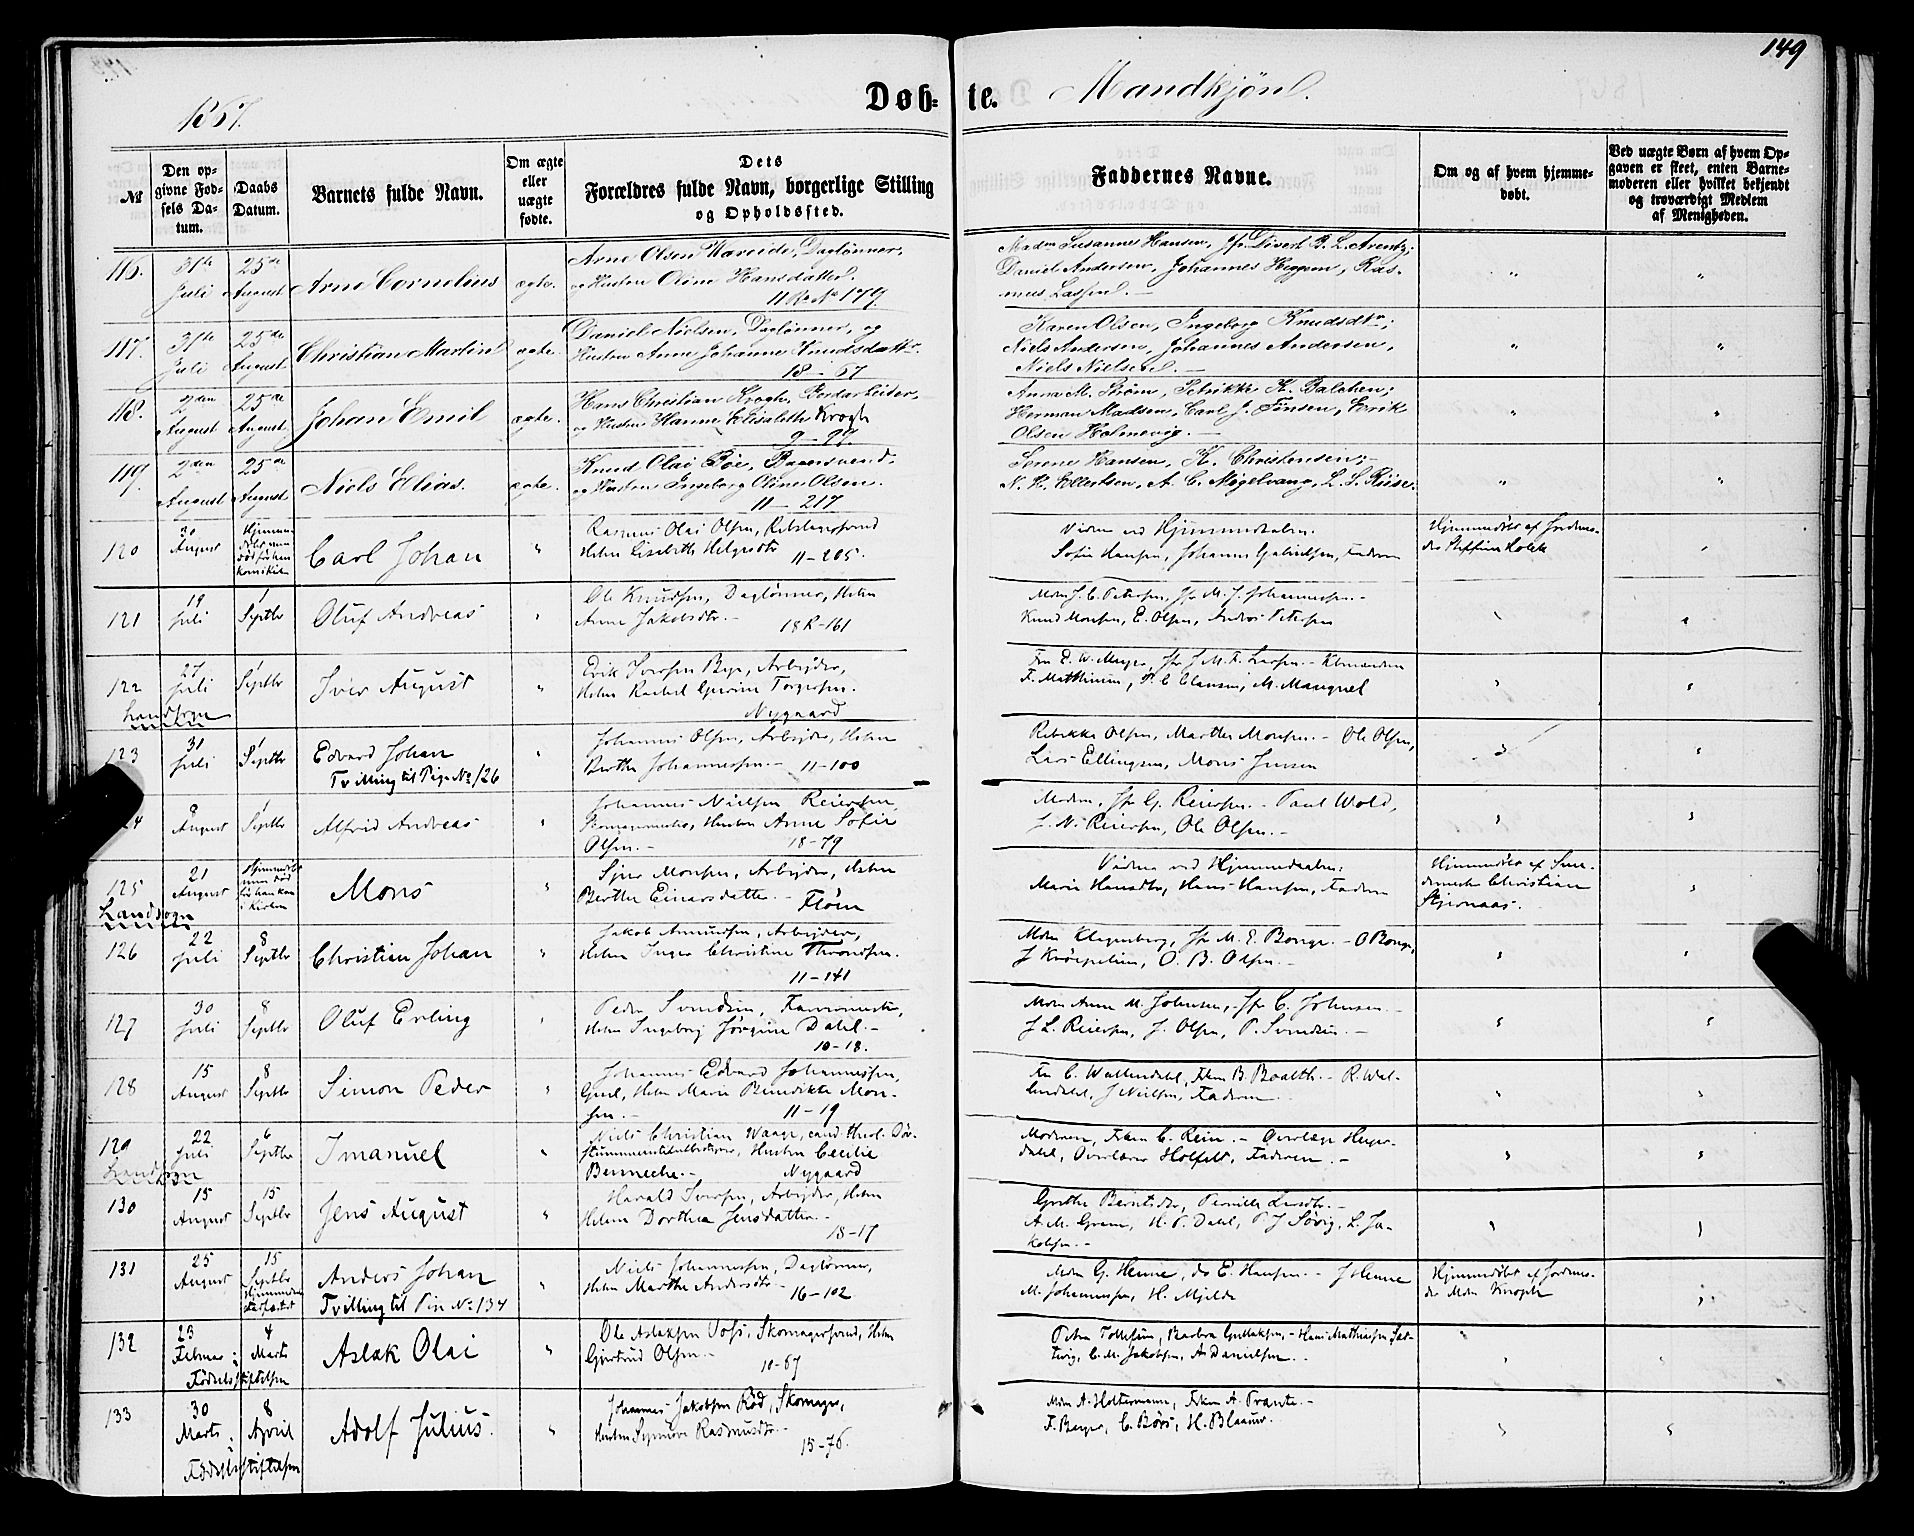 149
1867.
Døb-te. Mandkjön.
№
Den op-
givne Fød-
sels Da-
tum.
Daabs
Datum.
Barnets fulde Navn.
Om ægte
eller
uægte
fødte.
Dets
Forældres fulde Navn, borgerlige Stilling
og Opholdssted.
Faddernes Navne.
Om og af hvem hjemme-
døbt.
Ved uægte Børn af hvem Op-
gaven er skeet, enten Barne-
moderen eller hvilket bekjendt
og troværdigt Medlem
af Menigheden.
116.
31te
Juli
25de
August
Arne Cornelius
ægte.
Arne Olsen Wareide, Daglønner,
og Hustru Oline Hansdatter.
11 R. No 179.
Madm Susanne Hansen, Jfr. Divert B. L. Arentz;
Daniel Andersen, Johannes Heggem, Ras-
mus Lassen.
117.
31te
Juli
25de
August
Christian Martin
ægte.
Daniel Nielsen, Daglønner, og
Hustru Anne Johanne Knudsdattr.
18 – 67
Karen Olsen, Ingeborg Knudsdtr;
Niels Andersen, Johannes Andersen,
Niels Nielsen.
118.
2den
August
25de
August
Johan Emil
ægte.
Hans Christian Krogh, Bordarbeider,
og Hustru Hanne Elisabeth Krogh
9 – 99.
Anna M. Strøm, Petrikke K. Balchen;
Herman Madsen, Carl J. Jinsen, Erik
Olsen Holmevig.
119.
2den
August
25de
August
Niels Elias
ægte.
Knud Olai Bøe, Bagersvend,
og Hustru Ingeborg Oline Olsen.
11 – 217
Serene Hansen, K. Christensen;
N. K. Ellertsen, A. C. Møgelvang, L. S. Riise.
120
30
August
Carl Johan
Rasmus Olai Olsen, Rebslagersvend
Helene Lisebeth Helgesdtr 11–205.
Vidner ved Hjemmedaaben:
Sofie Hansen, Johannes Gabrielsen, Faderen
Hjemmedøbt af Jordemo-
der Steffine Holck
121
19
Juli
1
Septbr
Oluf Andreas
Ole Knudsen, Daglønner, Hstru
Anne Jakobsdtr.
18 R–161
Mdm J. C. Petersen, Jfr M. J. Johannessen.
Knud Monsen, E. Olsen, Anders Petersen
122
Landsogn
27
Juli
1
Septbr
Iver August
Erik Iversen Bye, Arbeider,
Hstru Rachel Gurine Torgersen.
Nygaard
Fru E. W. Meyer, Jfr J. M. F. Larsen.
F. Matthiesen, P. C. Clausen, M. Manquel
123
31
Juli
1
Septbr
Edvard Johan
Tvilling til Pige No 126
Johannes Olsen, Arbeider, Hstru
Berthe Johannessen. 11–100
Rebekka Olsen, Marthe Monsen. Ole Olsen,
Lars Ellingsen, Mons Jensen
8
August
1
Septbr
Alfrid Andreas
Johannes Nielsen Reiersen,
Skomagermester, Hustru Anne Sofie
Olsen. 18–79
Moderen, Jfr G. Reiersen. Paul Wold,
J. N. Reiersen, Ole Olsen.
125
Landsogn
21
August
Mons
Sjur Monsen, Arbeider, Hstru
Berthe Einarsdatter. Fløen
Vidner ved Hjemmedaaben:
Marie Hansdtr, Hans Hansen, Faderen
Hjemmedøbt af Sme-
demester Christian
Stjernaas.
126
22
Juli
8
Septbr
Christian Johan
Jakob Amundsen, Arbeider,
Hstru Inger Christine Throndsen.
11–141
Mdm Klagenberg, Jfr M. E. Bonge. O Bonge,
J Knöepelin, O. B. Olsen.
127
30
Juli
8
Septbr
Oluf Erling
Peder Svendsen,
Hstru Ingeborg Jørgine Dahl.
10–18.
Mdm Anne M. Johnsen, Jfr C. Johnsen.
J L. Reiersen, J. Olsen, P. Svendsen.
128
15
August
8
Septbr
Simon Peder
Johannes Edvard Johannessen,
Hstru Marie Benedikte Mon-
sen. 11–19
Fru C. Wallendahl, Frkn B. Boalth. R. Wal-
lendahl, J Nielsen, Faderen.
129
Landsogn
22
Juli
6
Septbr
Imanuel
Niels Christian Waage, cand. theol. Døv-
stummeinstitutbestyrer, Hustru Cecilie
Benneche. Nygaard
Moderen, Frkn C. Rein. Overlæge Heyer-
dahl, Overlærer Holfeldt, Faderen.
130
15
August
15
Septbr
Jens August
Harald Iversen, Arbeider, Hstru
Helene Dorthea Jensdatter.
18–17
Grethe Berntsdtr, Pernille Larsdtr.
A. M. Green, H. P. Dahl, P J Søvig, L. Ja-
kobsen.
131
25
August
15
Septbr
Anders Johan
Tvilling til Pige No 134
Niels Johannessen, Daglønner,
Hstru Marthe Andersdtr.
16–102
Mdm G. Henne, do E. Hansen. J Henne
M. Johannessen, H. Mjelde
Hjemmedøbt af Jordemo-
der Mdm Knoph
132
23
Februar
Fødselsstiftelsen
4
Marts
Aslak Olai
Ole Aslaksen Voss, Skomagersvend, Hstru
Gjertrud Olsen.
10–67
Petra Tollefsen, Barbra Gullaksen, Hans Mathiesen Sel-
tvig, C. M. Jakobsen, A Danielsen.
133
30
Marts
Fødselsstiftelsen
8
April
Adolf Julius.
Johannes Jakobsen Rød, Skomager,
Hustru Synnøve Rasmusdtr.
15–76.
Mdm A. Holtermann, Frkn A. Prante.
F. Beyer, C. Børs, H. Blaauw.